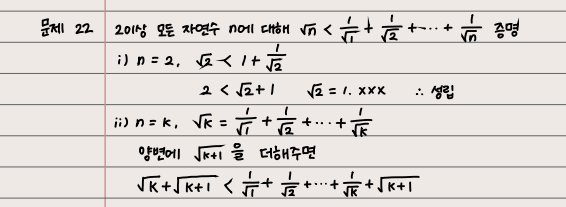 문제 22 2이상 모든 자연수 n에 대해 √n < 1/√1 + 1/√2 + ··· + 1/√n 증명
i) n = 2, √2 < 1 + 1/√2
2 < √2 + 1 √2 = 1. xxx ∴ 성립
ii) n = k, √k = 1/√1 + 1/√2 + ··· + 1/√k
양변에 √k+1 을 더해주면
√k + √k+1 < 1/√1 + 1/√2 + ··· + 1/√k + √k+1